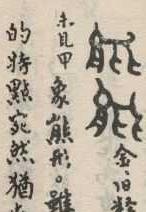 金、旧
未見甲象熊形。雖
的特點宛然猶